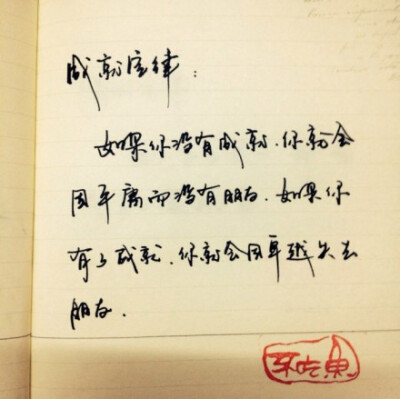 成就定律：
如果你没有成就，你就会
因平庸而没有朋友。如果你
有了成就，你就会因卓越失去
朋友.
不吃鱼